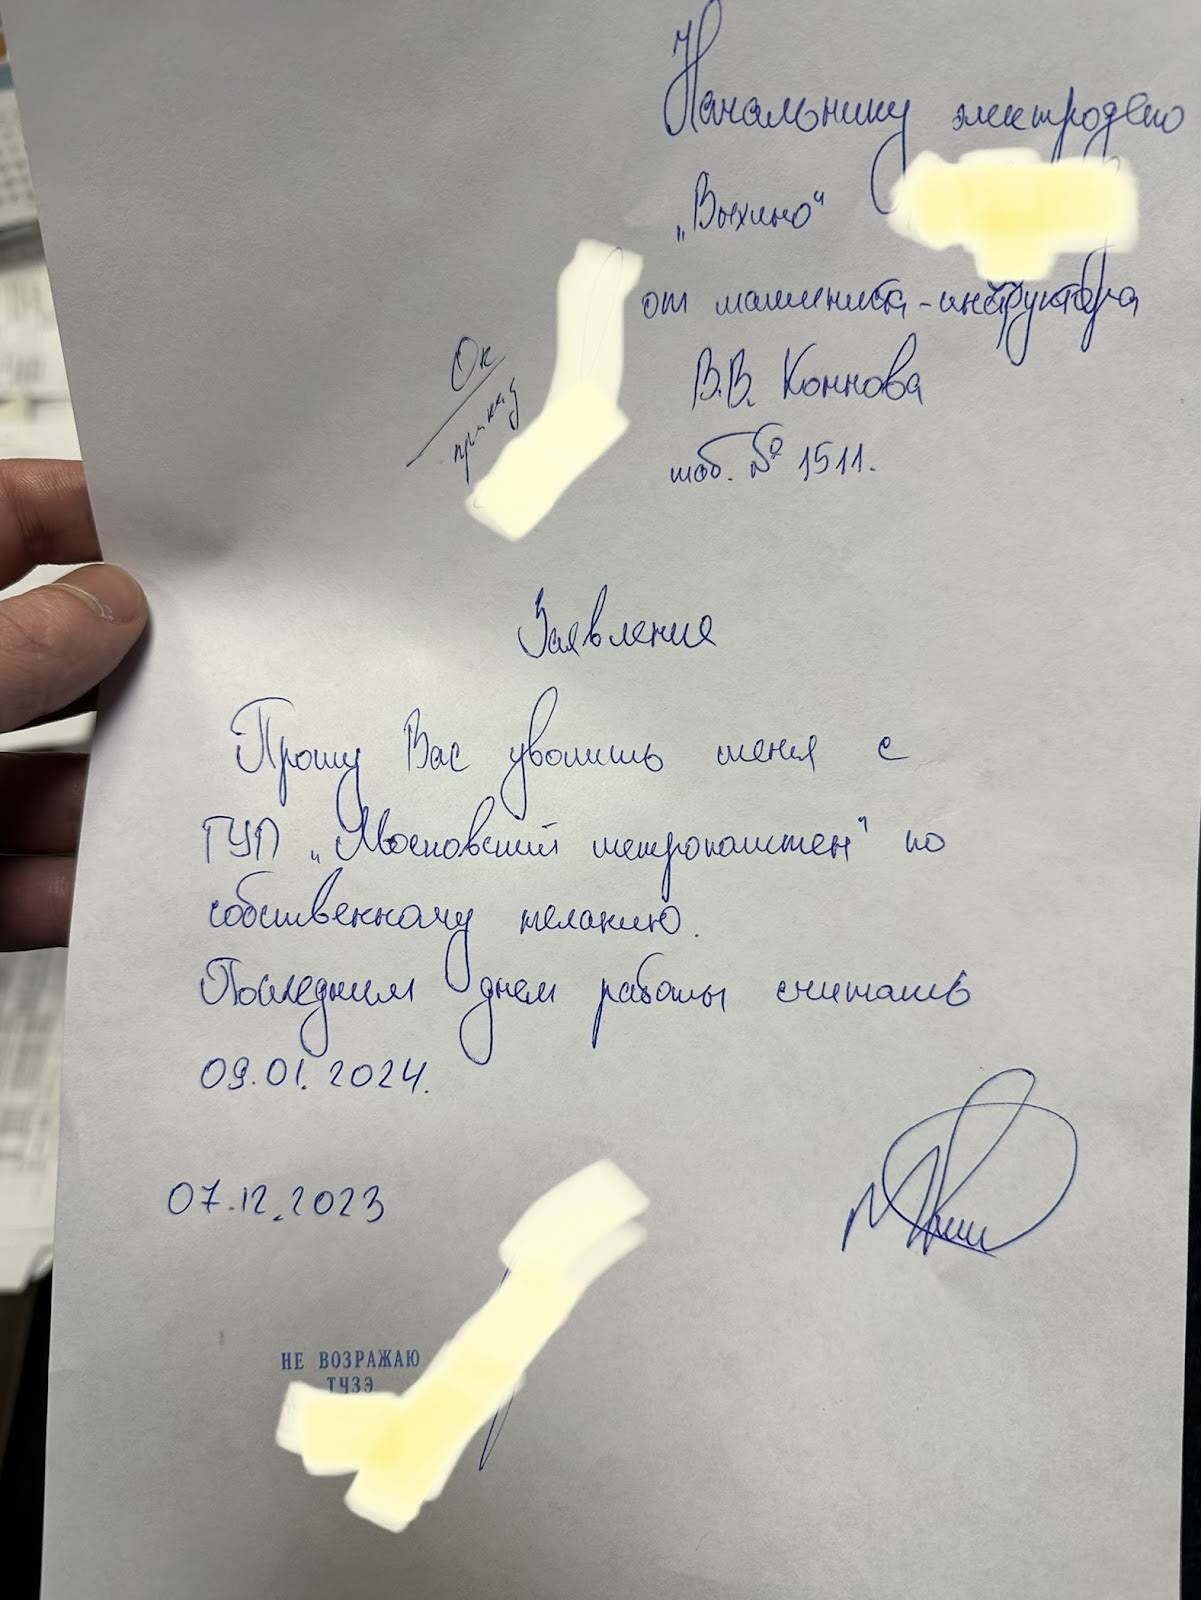 Начальнику электродепо
„Выхино“
от машиниста-инструктора
В.В. Коннова
таб. № 1511.
Ок
приказ
Заявление
Прошу Вас уволить меня с
ГУП „Московский метрополитен“ по
собственному желанию.
Последним днем работы считать
09.01.2024.
07.12.2023
НЕ ВОЗРАЖАЮ
ТЧЗЭ